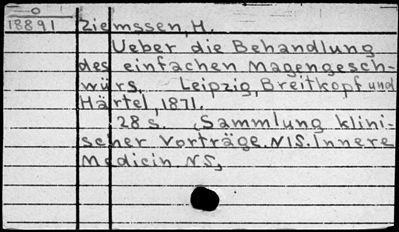 O
18891 Ziemssen, H.
Ueber die Behandlung
des einfachen Magengesch-
würs. Leipzig, Breitkopf und
Härtel, 1871.
28 s. (Sammlung klini-
scher Vorträge. N15. Innere
Medicin N.5)